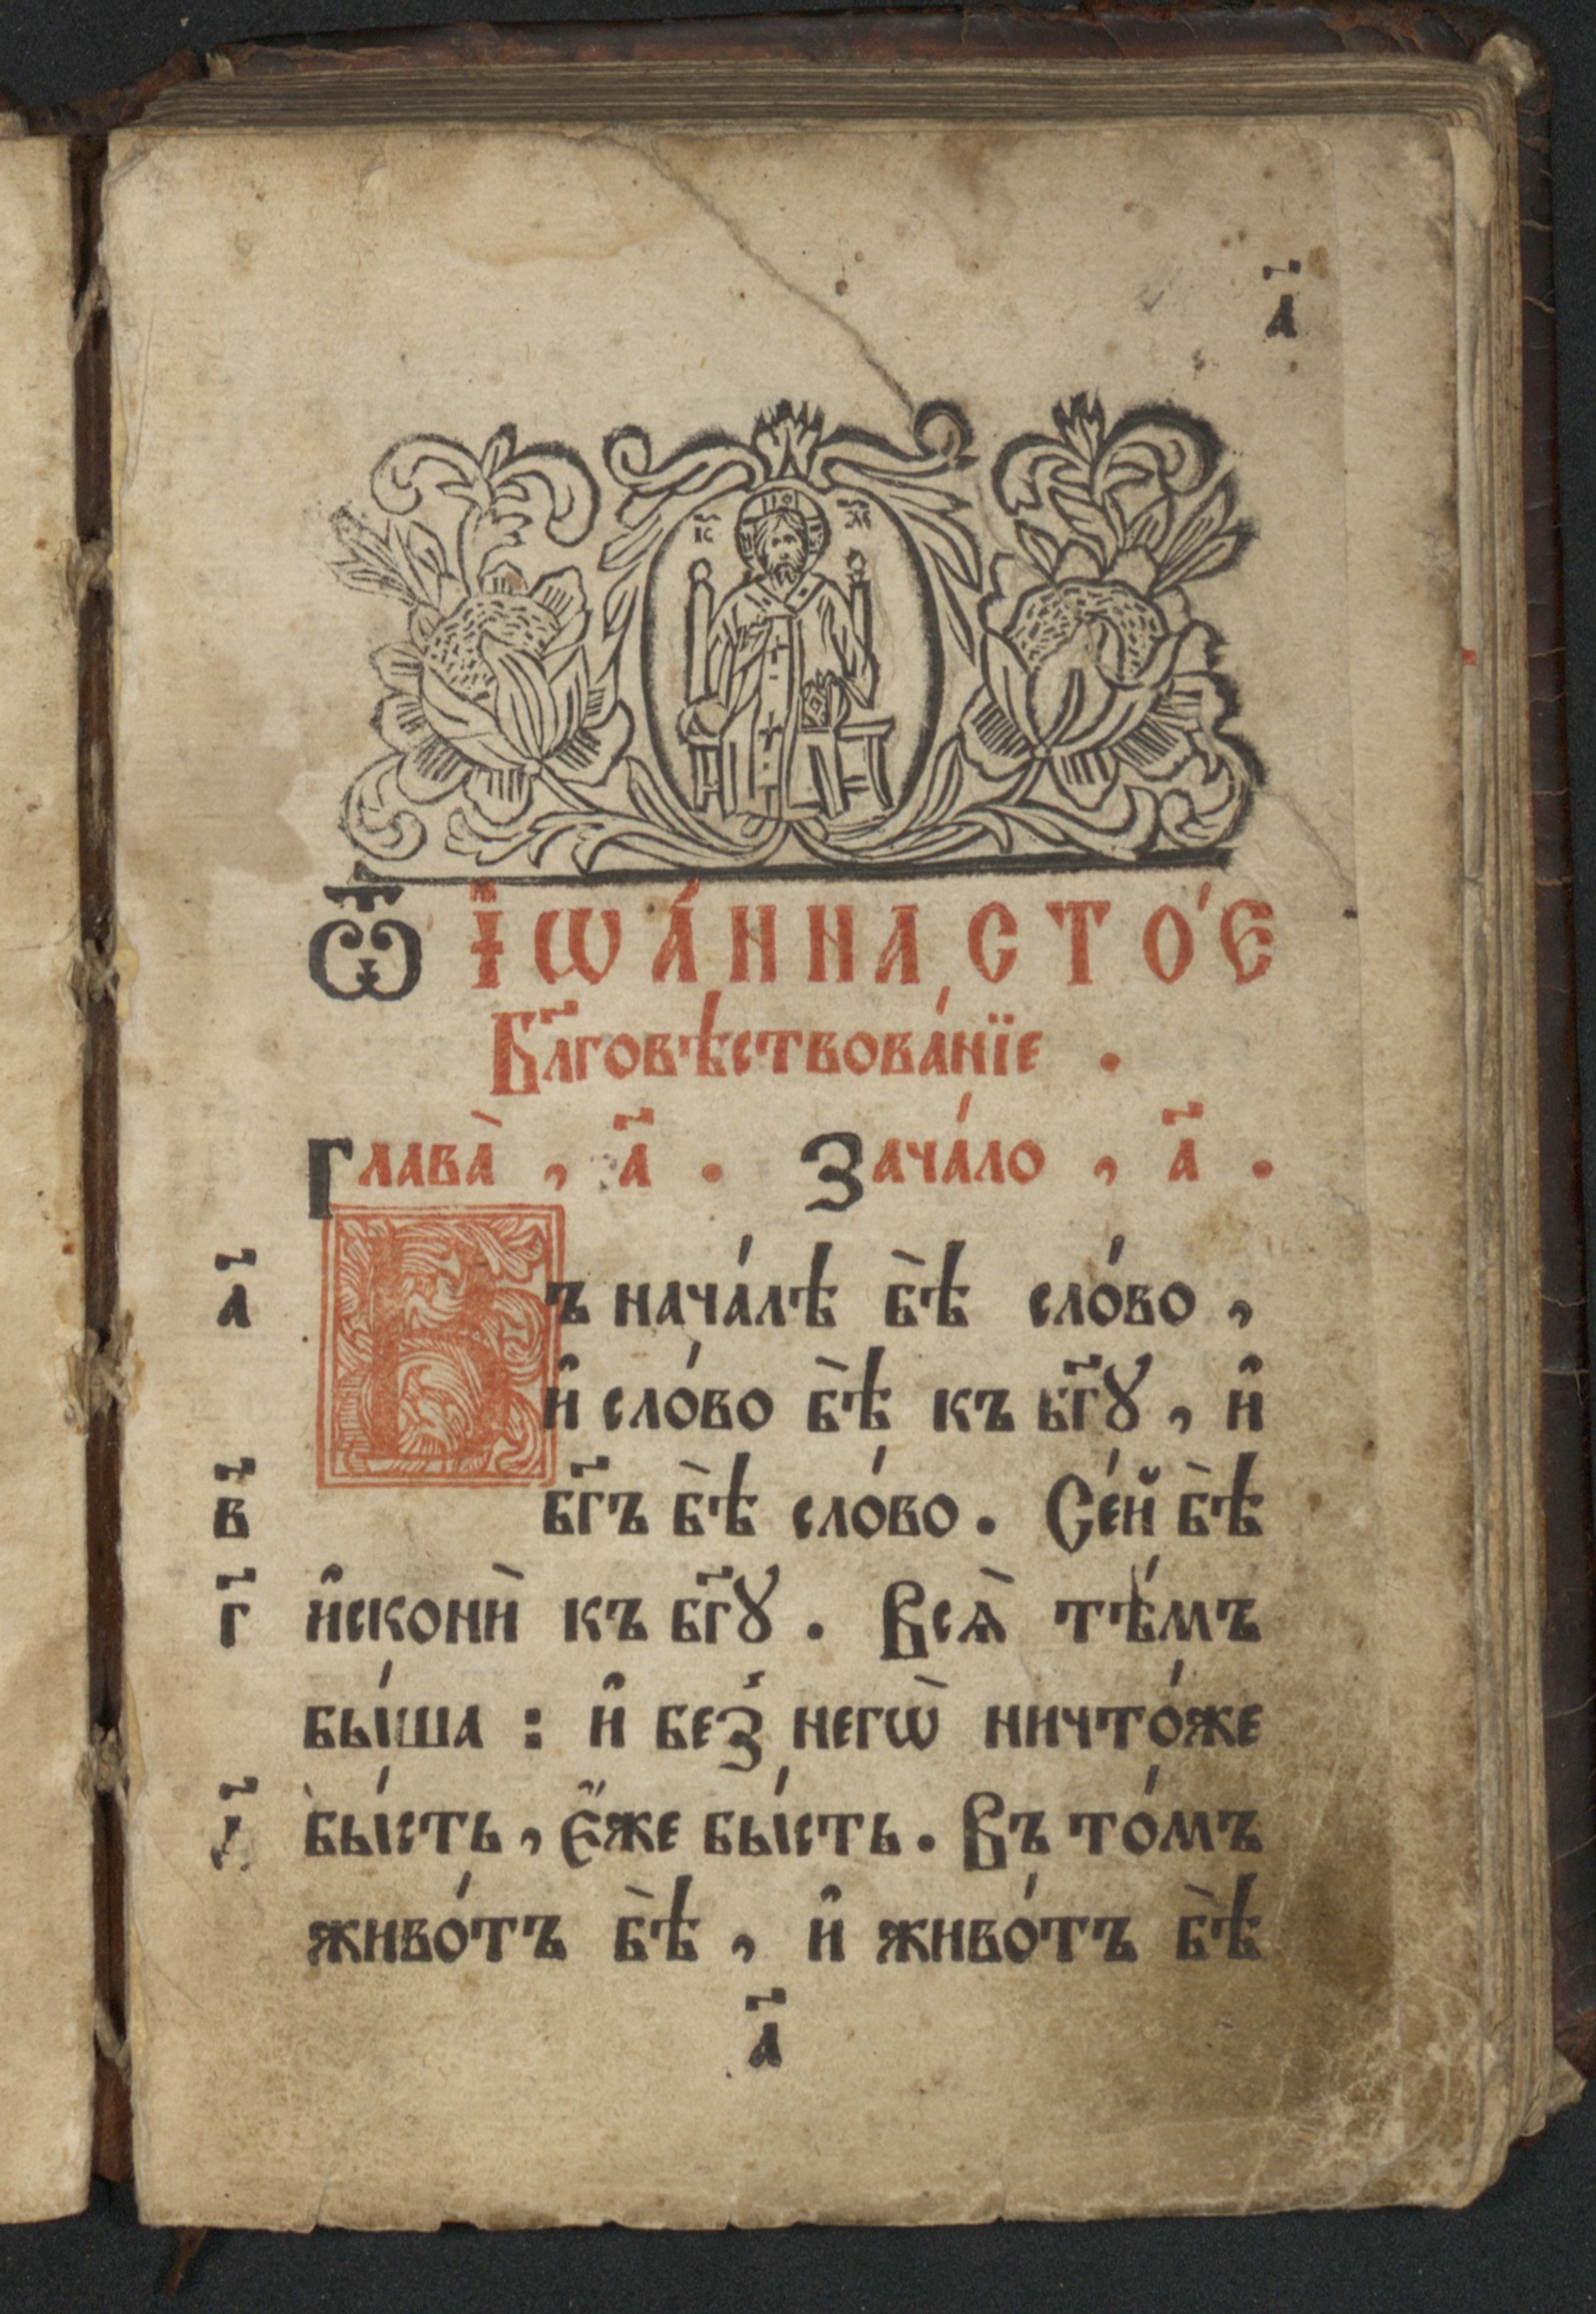 а҃
І҃С Х҃С
Ѿ І҆ѡа́нна сто́е
Бл҃говѣствова́нїе .
Глава̀ , а҃ . Зача́ло , а҃ .
а҃ Въ нача́лѣ бѣ̀ сло́во ,
и҆ сло́во бѣ̀ къ бг҃ꙋ , и҆
в҃ бг҃ъ бѣ̀ сло́во . Се́й бѣ̀
г҃ и҆сконѝ къ бг҃ꙋ . Всѧ̀ тѣ́мъ
бы́ша : и҆ без̾ негѡ̀ ничто́же
д҃ бы́сть , є҆́же бы́сть . Въ то́мъ
живо́тъ бѣ̀ , и҆ живо́тъ бѣ̀
а҃